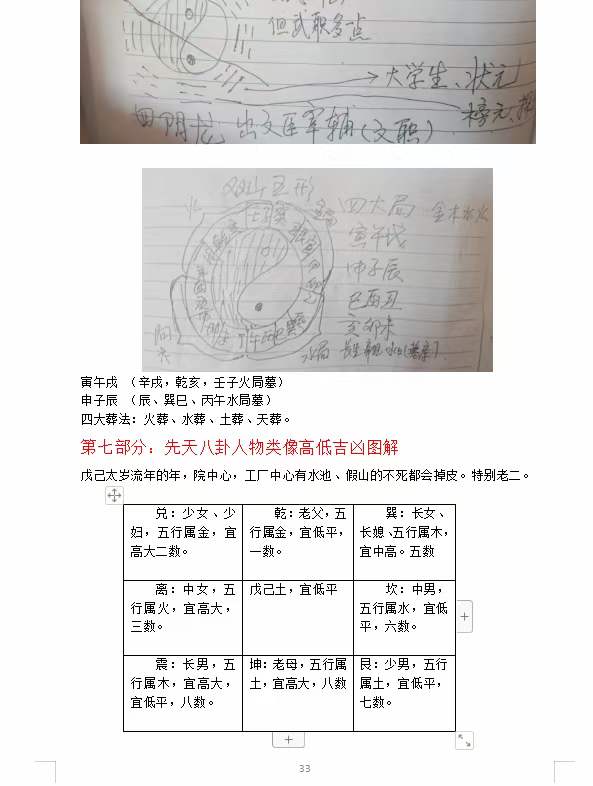 但武职多点
→大学生、状元
四阴龙 出文臣宰辅(文职)
双山五行
四大局 金木水火
寅午戌
申子辰
巳酉丑
亥卯未
寅午戌 （辛戌，乾亥，壬子火局墓）
申子辰 （辰、巽巳、丙午水局墓）
四大葬法：火葬、水葬、土葬、天葬。
第七部分：先天八卦人物类像高低吉凶图解
戊己太岁流年的年，院中心，工厂中心有水池、假山的不死都会掉皮。特别老二。
兑：少女、少
妇，五行属金，宜
高大二数。
乾：老父，五
行属金，宜低平，
一数。
巽：长女、
长媳、五行属木，
宜中高。五数
离：中女，五
行属火，宜高大，
三数。
戊己土，宜低平
坎：中男，
五行属水，宜低
平，六数。
震：长男，五
行属木，宜高大，
宜低平，八数。
坤：老母，五行属
土，宜高大，八数
艮：少男，五行
属土，宜低平，
七数。
33